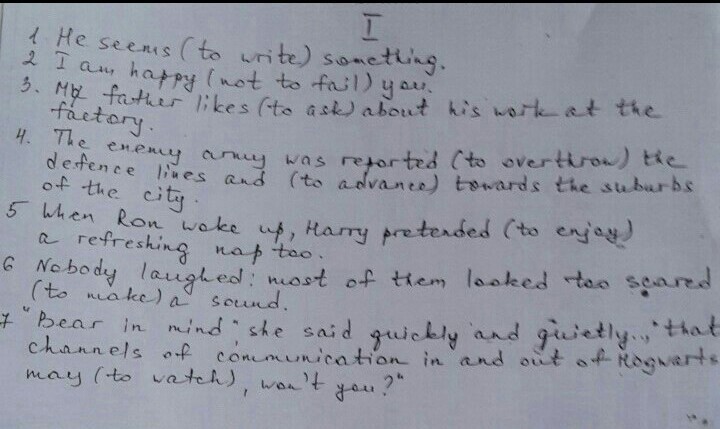 I
1 He seems (to write) something.
2 I am happy (not to fail) you.
3. My father likes (to ask) about his work at the
factory.
4. The enemy army was reported (to overthrow) the
defence lines and (to advance) towards the suburbs
of the city.
5 When Ron woke up, Harry pretended (to enjoy)
a refreshing nap too.
6 Nobody laughed: most of them looked too scared
(to make) a sound.
7 "Bear in mind" she said quickly and quietly..," that
channels of communication in and out of Hogwarts
may (to watch), won't you?"